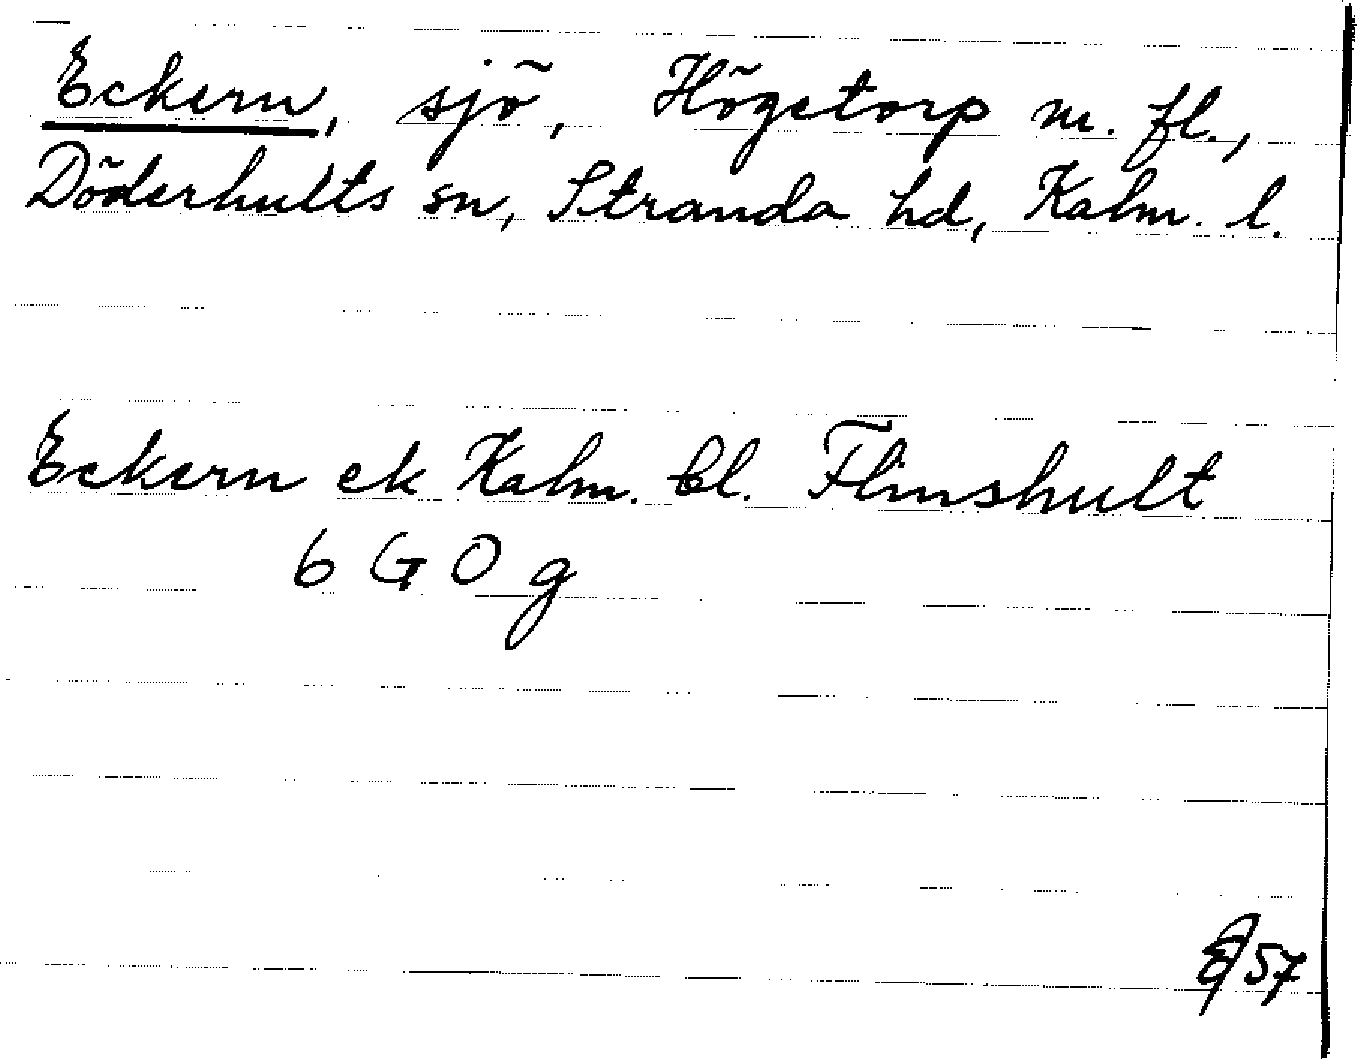 Eckern, sjö, Högetorp m. fl.,
Döderhults sn, Stranda hd, Kalm. l.
Eckern ek Kalm. bl. Flinshult
6 G O g
57